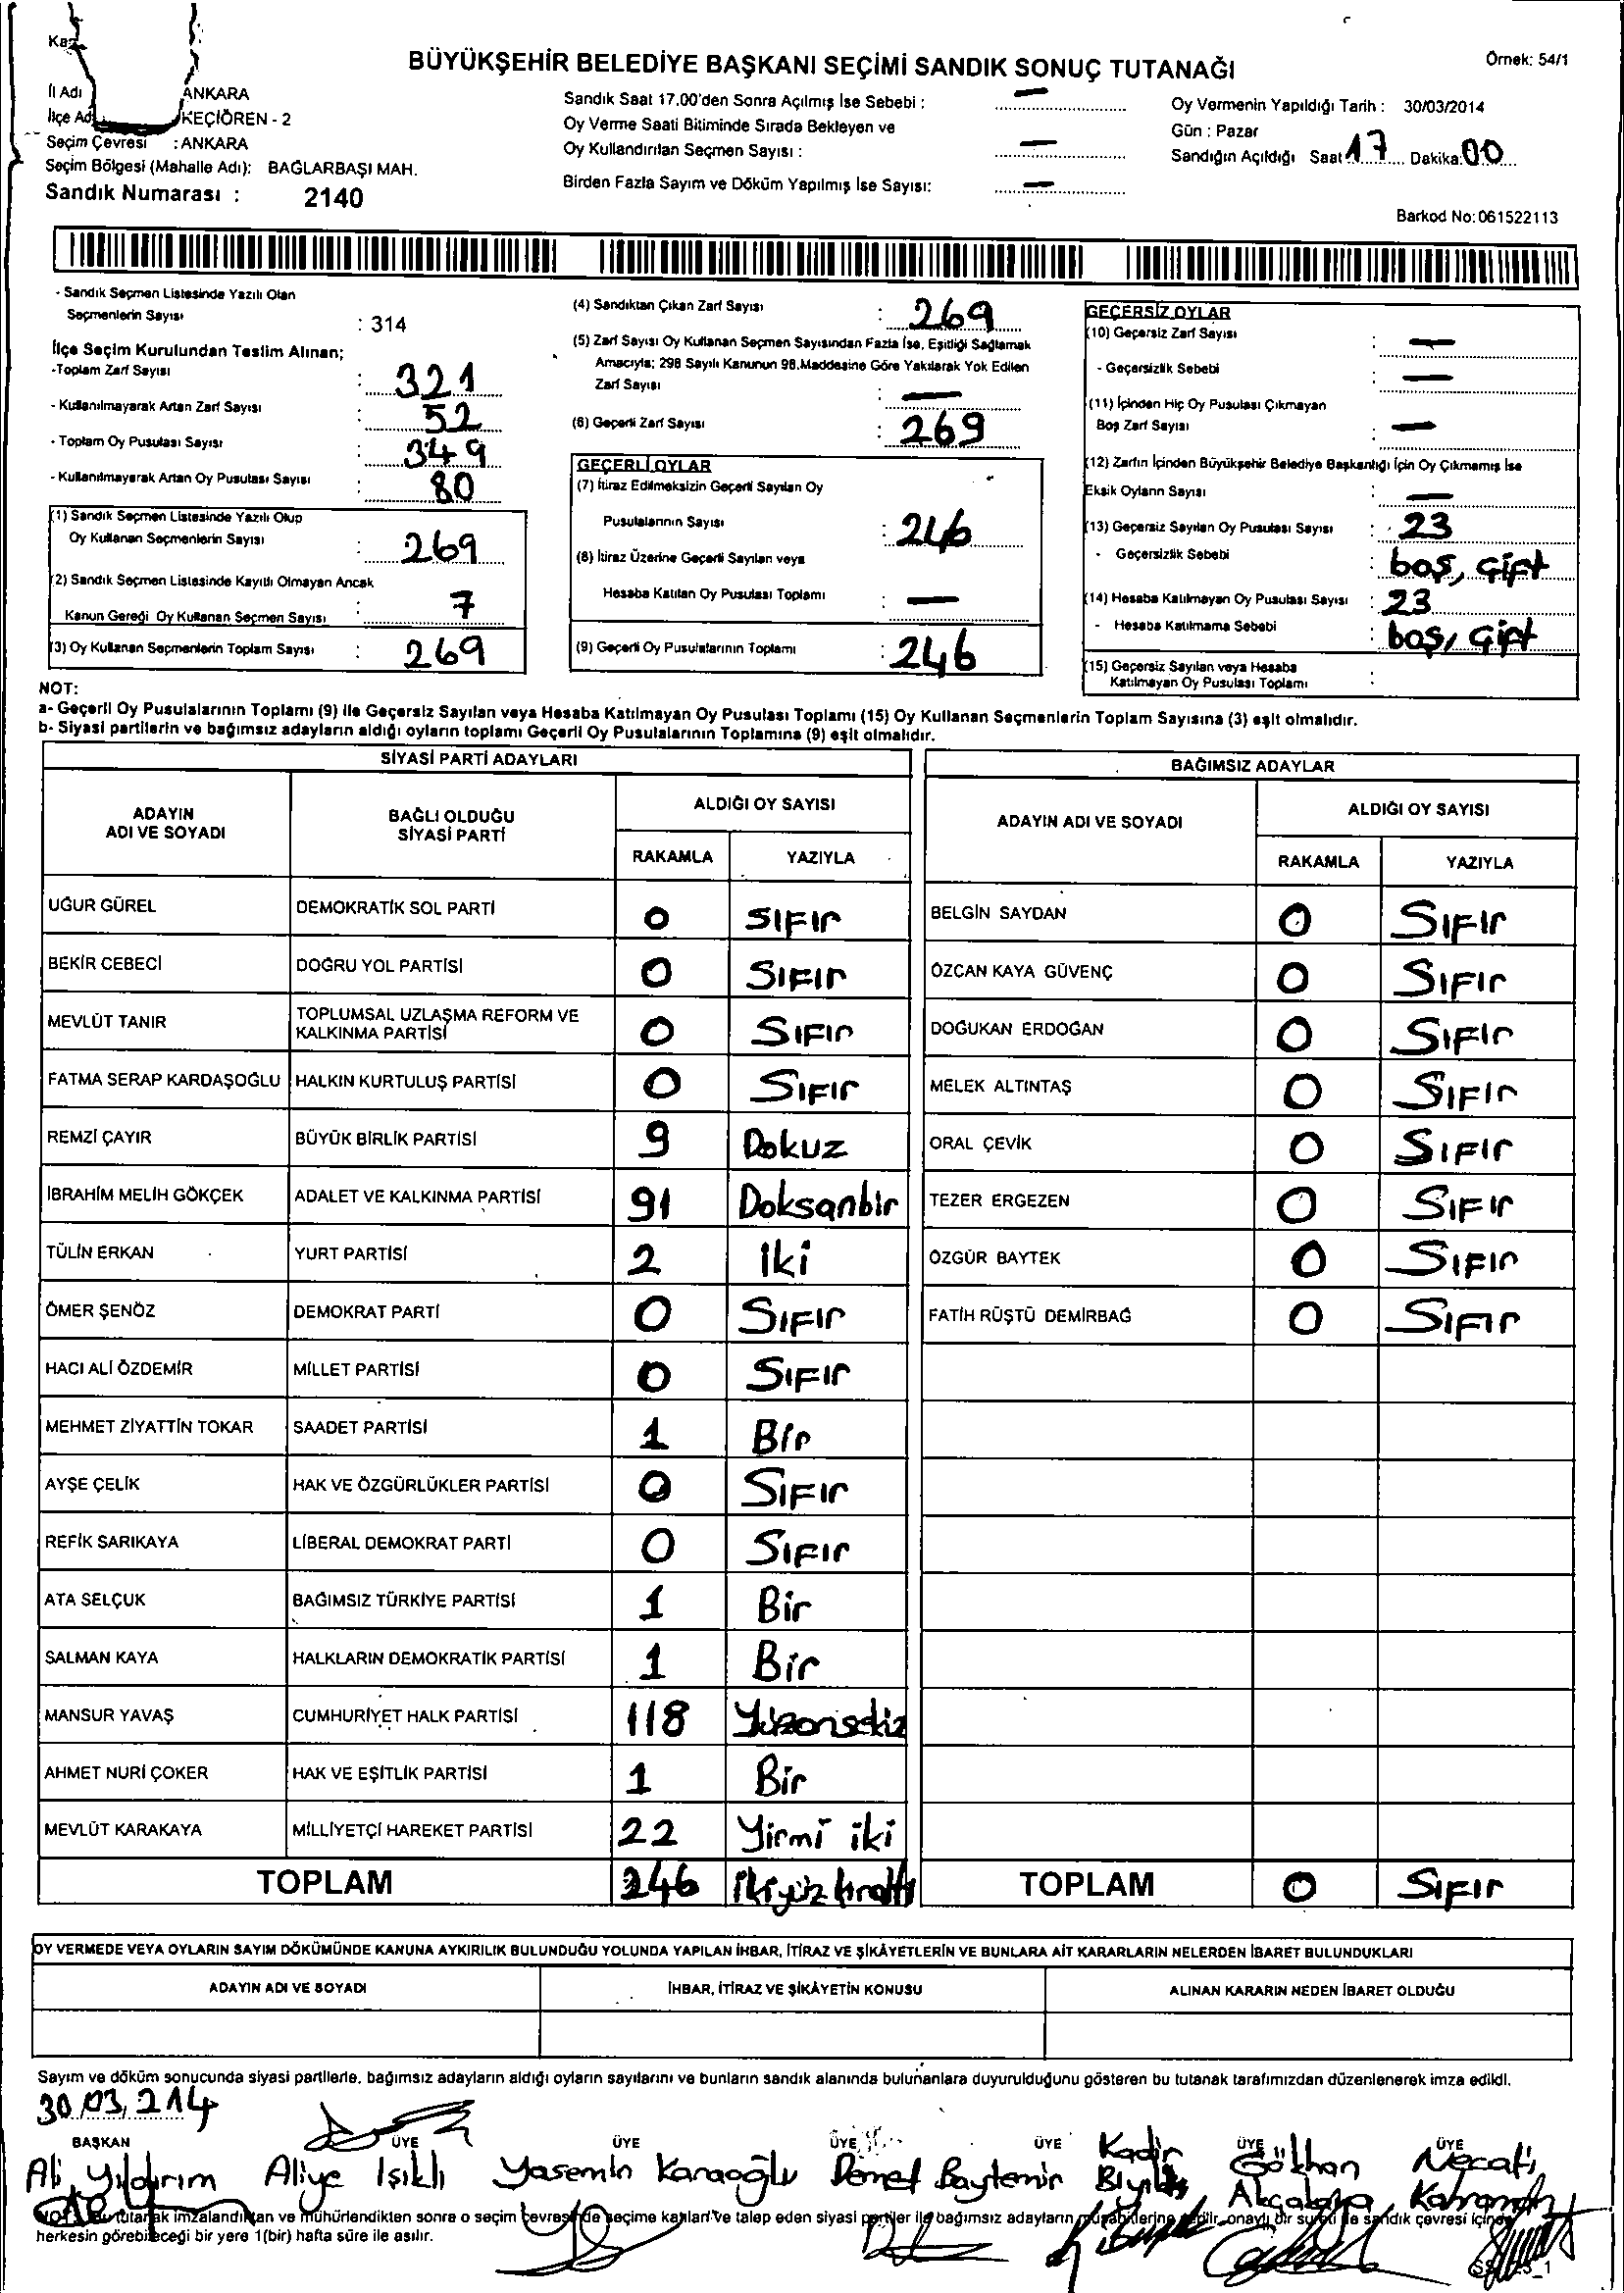 BÜYÜKŞEHİR BELEDİYE BAŞKANI SEÇİMİ SANDIK SONUÇ TUTANAĞI
Örnek: 54/1
İl Adı ANKARA
İlçe Adı KEÇİÖREN - 2
Seçim Çevresi : ANKARA
Seçim Bölgesi (Mahalle Adı): BAĞLARBAŞI MAH.
Sandık Numarası : 2140
Sandık Saat 17.00'den Sonra Açılmış İse Sebebi : —
Oy Verme Saati Bitiminde Sırada Bekleyen ve
Oy Kullandırılan Seçmen Sayısı : —
Birden Fazla Sayım ve Döküm Yapılmış İse Sayısı: —
Oy Vermenin Yapıldığı Tarih : 30/03/2014
Gün : Pazar
Sandığın Açıldığı Saat 17 Dakika: 00
Barkod No: 061522113
- Sandık Seçmen Listesinde Yazılı Olan
Seçmenlerin Sayısı : 314
İlçe Seçim Kurulundan Teslim Alınan;
-Toplam Zarf Sayısı : 321
- Kullanılmayarak Artan Zarf Sayısı : 52
- Toplam Oy Pusulası Sayısı : 349
- Kullanılmayarak Artan Oy Pusulası Sayısı : 80
(1) Sandık Seçmen Listesinde Yazılı Olup
Oy Kullanan Seçmenlerin Sayısı : 269
(2) Sandık Seçmen Listesinde Kayıtlı Olmayan Ancak
Kanun Gereği Oy Kullanan Seçmen Sayısı : 7
(3) Oy Kullanan Seçmenlerin Toplam Sayısı : 269
(4) Sandıktan Çıkan Zarf Sayısı : 269
(5) Zarf Sayısı Oy Kullanan Seçmen Sayısından Fazla İse, Eşitliği Sağlamak
Amacıyla; 298 Sayılı Kanunun 98.Maddesine Göre Yakılarak Yok Edilen
Zarf Sayısı : —
(6) Geçerli Zarf Sayısı : 269
GEÇERLİ OYLAR
(7) İtiraz Edilmeksizin Geçerli Sayılan Oy
Pusulalarının Sayısı : 246
(8) İtiraz Üzerine Geçerli Sayılan veya
Hesaba Katılan Oy Pusulası Toplamı : —
(9) Geçerli Oy Pusulalarının Toplamı : 246
GEÇERSİZ OYLAR
(10) Geçersiz Zarf Sayısı : —
- Geçersizlik Sebebi : —
(11) İçinden Hiç Oy Pusulası Çıkmayan
Boş Zarf Sayısı : —
(12) Zarfın İçinden Büyükşehir Belediye Başkanlığı İçin Oy Çıkmamış İse
Eksik Oyların Sayısı : —
(13) Geçersiz Sayılan Oy Pusulası Sayısı : 23
- Geçersizlik Sebebi : boş, çift
(14) Hesaba Katılmayan Oy Pusulası Sayısı : 23
- Hesaba Katılmama Sebebi : boş, çift
(15) Geçersiz Sayılan veya Hesaba
Katılmayan Oy Pusulası Toplamı :
NOT:
a- Geçerli Oy Pusulalarının Toplamı (9) ile Geçersiz Sayılan veya Hesaba Katılmayan Oy Pusulası Toplamı (15) Oy Kullanan Seçmenlerin Toplam Sayısına (3) eşit olmalıdır.
b- Siyasi partilerin ve bağımsız adayların aldığı oyların toplamı Geçerli Oy Pusulalarının Toplamına (9) eşit olmalıdır.
SİYASİ PARTİ ADAYLARI
ADAYIN ADI VE SOYADI BAĞLI OLDUĞU SİYASİ PARTİ ALDIĞI OY SAYISI
RAKAMLA YAZIYLA
UĞUR GÜREL DEMOKRATİK SOL PARTİ 0 SIFIr
BEKİR CEBECİ DOĞRU YOL PARTİSİ 0 SIFIr
MEVLÜT TANIR TOPLUMSAL UZLAŞMA REFORM VE KALKINMA PARTİSİ 0 SIFIr
FATMA SERAP KARDAŞOĞLU HALKIN KURTULUŞ PARTİSİ 0 SIFIr
REMZİ ÇAYIR BÜYÜK BİRLİK PARTİSİ 9 Dokuz
İBRAHİM MELİH GÖKÇEK ADALET VE KALKINMA PARTİSİ 91 Doksanbir
TÜLİN ERKAN YURT PARTİSİ 2 İki
ÖMER ŞENÖZ DEMOKRAT PARTİ 0 SIFIr
HACI ALİ ÖZDEMİR MİLLET PARTİSİ 0 SIFIr
MEHMET ZİYATTİN TOKAR SAADET PARTİSİ 1 Bir
AYŞE ÇELİK HAK VE ÖZGÜRLÜKLER PARTİSİ 0 SIFIr
REFİK SARIKAYA LİBERAL DEMOKRAT PARTİ 0 SIFIr
ATA SELÇUK BAĞIMSIZ TÜRKİYE PARTİSİ 1 Bir
SALMAN KAYA HALKLARIN DEMOKRATİK PARTİSİ 1 Bir
MANSUR YAVAŞ CUMHURİYET HALK PARTİSİ 118 Yüzonsekiz
AHMET NURİ ÇOKER HAK VE EŞİTLİK PARTİSİ 1 Bir
MEVLÜT KARAKAYA MİLLİYETÇİ HAREKET PARTİSİ 22 Yirmi iki
TOPLAM 246 İkiyüz kırkaltı
BAĞIMSIZ ADAYLAR
ADAYIN ADI VE SOYADI ALDIĞI OY SAYISI
RAKAMLA YAZIYLA
BELGİN SAYDAN 0 SIFIr
ÖZCAN KAYA GÜVENÇ 0 SIFIr
DOĞUKAN ERDOĞAN 0 SIFIr
MELEK ALTINTAŞ 0 SIFIr
ORAL ÇEVİK 0 SIFIr
TEZER ERGEZEN 0 SIFIr
ÖZGÜR BAYTEK 0 SIFIr
FATİH RÜŞTÜ DEMİRBAĞ 0 SIFIr
TOPLAM 0 SIFIr
OY VERMEDE VEYA OYLARIN SAYIM DÖKÜMÜNDE KANUNA AYKIRILIK BULUNDUĞU YOLUNDA YAPILAN İHBAR, İTİRAZ VE ŞİKÂYETLERİN VE BUNLARA AİT KARARLARIN NELERDEN İBARET BULUNDUKLARI
ADAYIN ADI VE SOYADI İHBAR, İTİRAZ VE ŞİKÂYETİN KONUSU ALINAN KARARIN NEDEN İBARET OLDUĞU
Sayım ve döküm sonucunda siyasi partilerle, bağımsız adayların aldığı oyların sayılarını ve bunların sandık alanında bulunanlara duyurulduğunu gösteren bu tutanak tarafımızdan düzenlenerek imza edildi.
30.03.214
BAŞKAN ÜYE ÜYE ÜYE ÜYE ÜYE ÜYE
Ali Yıldırım Aliye Işıklı Yasemin Karaoğlu Demet Baytemir Kadir Bıyıklı Gökhan Akçakaya Necati Kahraman
NOT: Bu tutanak imzalandıktan ve mühürlendikten sonra o seçim çevresinde seçime katılan ve talep eden siyasi partiler ile bağımsız adayların müşahitlerine verilir, onaylı bir sureti de sandık çevresi içinde
herkesin görebileceği bir yere 1(bir) hafta süre ile asılır.